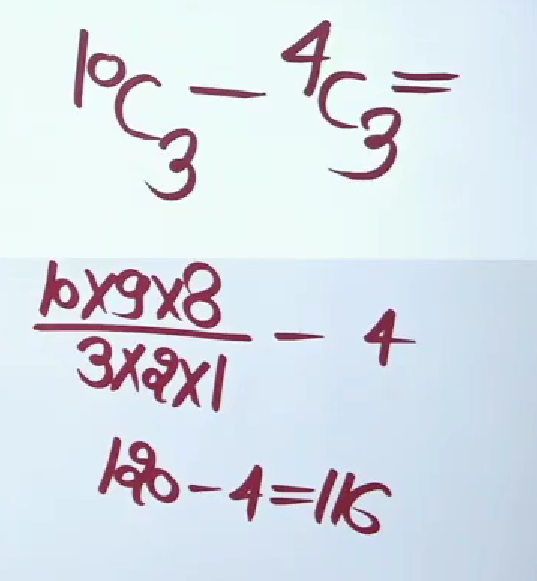 ¹⁰C₃ - ⁴C₃ =
10x9x8
3x2x1
- 4
120 - 4 = 116